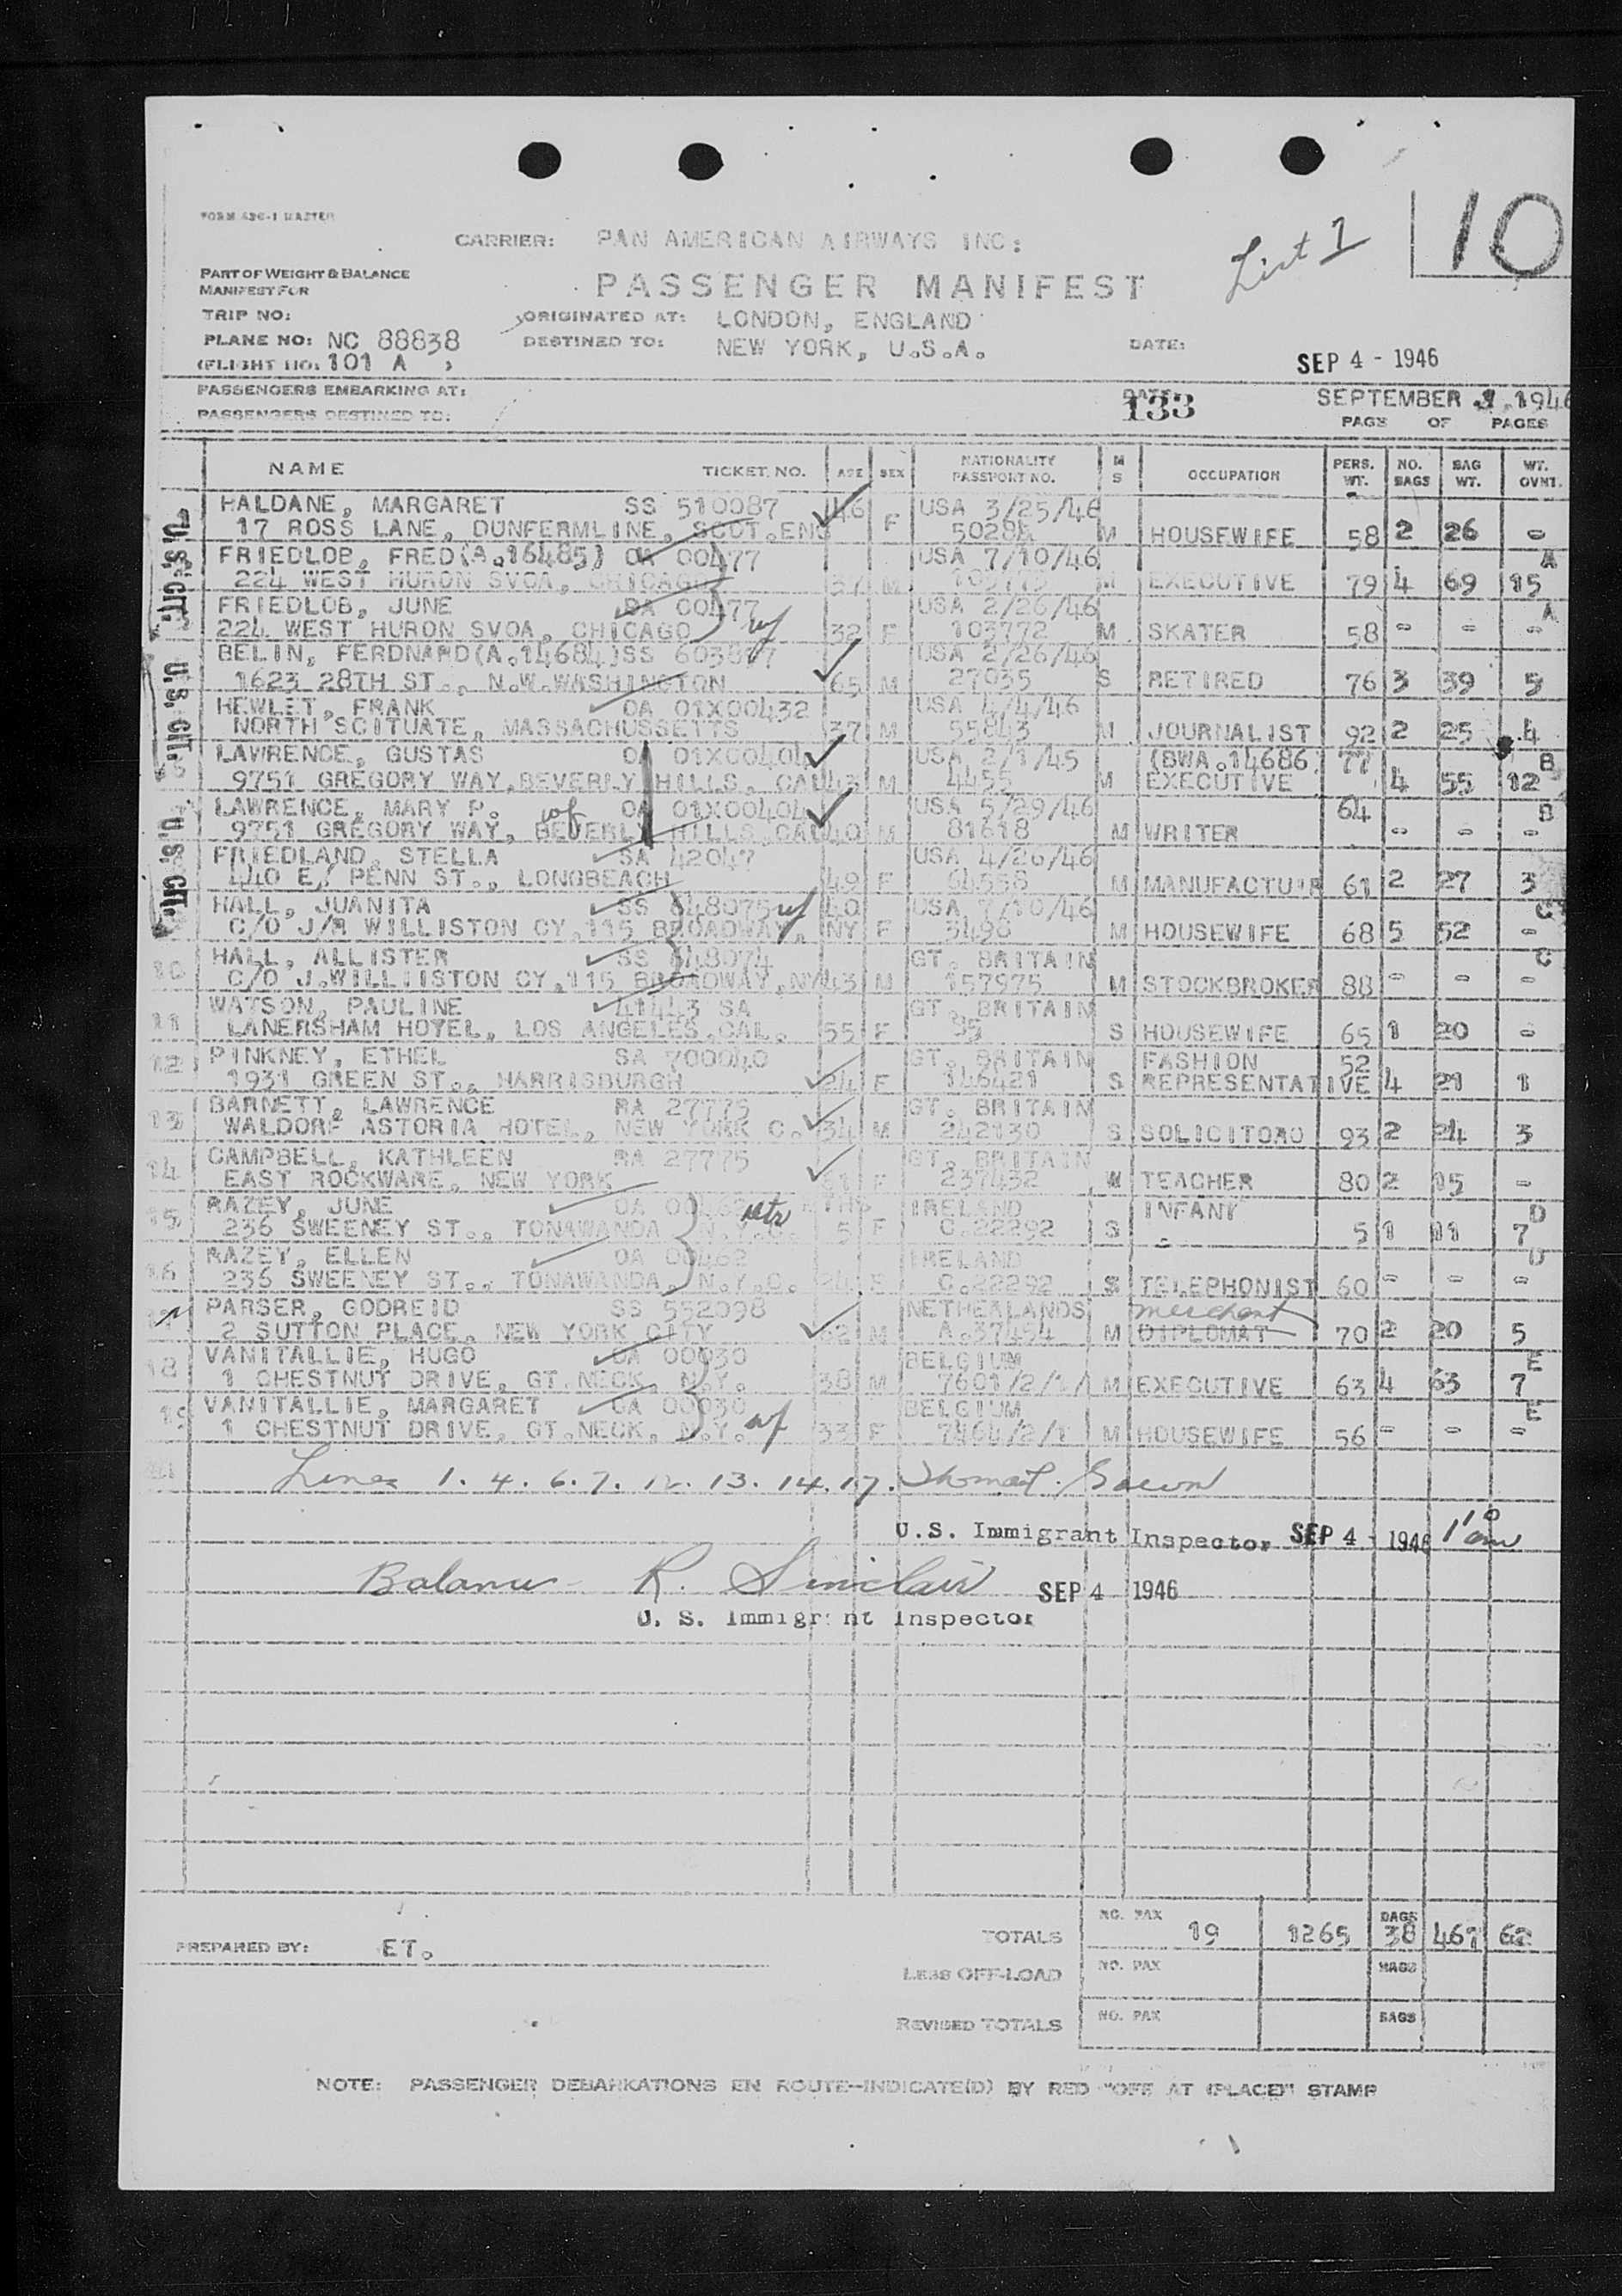 FORM 436-1 MASTER
CARRIER: PAN AMERICAN AIRWAYS INC:
List 1
10
PART OF WEIGHT & BALANCE
MANIFEST FOR
PASSENGER MANIFEST
TRIP NO:
ORIGINATED AT: LONDON, ENGLAND
PLANE NO: NC 88838
DESTINED TO: NEW YORK, U.S.A.
DATE: SEP 4 - 1946
(FLIGHT NO: 101 A )
PASSENGERS EMBARKING AT:
DATE: 133 SEPTEMBER 1946
PASSENGERS DESTINED TO:
PAGE OF PAGES
NAME TICKET NO. AGE SEX NATIONALITY PASSPORT NO. M S OCCUPATION PERS. WT. NO. BAGS BAG WT. WT. OVNT.
U.S. CIT. U.S. CIT. U.S. CIT.
HALDANE, MARGARET SS 510087 46 USA 3/25/46
17 ROSS LANE, DUNFERMLINE, SCOT.ENG F M HOUSEWIFE 58 2 26 -
FRIEDLOB, FRED(A.16485) OA 00477 USA 7/10/46 A
224 WEST HURON SVOA, CHICAGO 37 M M EXECUTIVE 79 4 69 15
FRIEDLOB, JUNE OA 00477 USA 2/26/46 A
224 WEST HURON SVOA, CHICAGO wf 32 F 103772 M SKATER 58 - - -
BELIN, FERDNARD(A.14684)SS USA 2/26/46
1623 28TH ST., N.W.WASHINGTON 65 M 27035 S RETIRED 76 3 39 5
HEWLET, FRANK OA 01X00432 USA 4/4/46
NORTH SCITUATE, MASSACHUSSETTS 37 M 55843 M JOURNALIST 92 2 25 4
LAWRENCE, GUSTAS OA 01X00404 USA 2/1/45 (BWA.14686 77 B
9751 GREGORY WAY,BEVERLY HILLS, CAL 43 M 4455 M EXECUTIVE 4 55 12
LAWRENCE, MARY P. wf OA 01X00404 USA 5/29/46 64 B
9751 GREGORY WAY, BEVERLY HILLS,CAL 40 M 81618 M WRITER - - -
FRIEDLAND, STELLA SA 42047 USA 4/26/46
440 E. PENN ST., LONGBEACH 49 F 64558 M MANUFACTUIR 61 2 27 3
HALL, JUANITA SS 648075 wf 40 USA 7/10/46 C
C/O J/R WILLISTON CY,115 BROADWAY, NY F 3496 M HOUSEWIFE 68 5 52 -
10 HALL, ALLISTER SS 648074 GT. BRITAIN C
C/O J.WILLIISTON CY,115 BROADWAY,NY 43 M 157975 M STOCKBROKER 88 - - -
WATSON, PAULINE 41443 SA GT. BRITAIN
11 LANERSHAM HOTEL, LOS ANGELES,CAL. 55 F 35 S HOUSEWIFE 65 1 20 -
12 PINKNEY, ETHEL SA 700040 GT. BRITAIN FASHION 52
1931 GREEN ST., HARRISBURGH 24 F 146421 S REPRESENTATIVE 4 21 1
13 BARNETT, LAWRENCE RA 27775 GT. BRITAIN
WALDORF ASTORIA HOTEL, NEW YORK C. 34 M 242130 S SOLICITOR 93 2 24 3
14 CAMPBELL, KATHLEEN RA 27775 GT. BRITAIN
EAST ROCKWARE, NEW YORK F 237432 W TEACHER 80 2 15 -
15 RAZEY, JUNE OA 00462 MTHS IRELAND INFANT D
236 SWEENEY ST., TONAWANDA N.Y.C. 5 F C.22292 S - 5 1 11 7
RAZEY, ELLEN OA 00462 IRELAND D
16 236 SWEENEY ST., TONAWANDA, N.Y.C. 24 F C.22292 S TELEPHONIST 60 - - -
PARSER, GODREID SS 552098 NETHERLANDS merchant
2 SUTTON PLACE, NEW YORK CITY M A.37454 M DIPLOMAT 70 2 20 5
18 VANITALLIE, HUGO OA 00030 BELGIUM E
1 CHESTNUT DRIVE, GT.NECK, N.Y. 38 M 7601/2/ M EXECUTIVE 63 4 63 7
19 VANITALLIE, MARGARET OA 00030 BELGIUM E
1 CHESTNUT DRIVE, GT.NECK, N.Y. wf 33 F 7464/2/1 M HOUSEWIFE 56 - - -
Lines 1. 4. 6. 7. 12. 13. 14. 17.
U.S. Immigrant Inspector SEP 4 - 1946
Balance R. Sinclair SEP 4 1946
U. S. Immigrant Inspector
TOTALS NO. PAX 19 1265 BAGS 38 461 62
PREPARED BY: ET.
LESS OFF-LOAD NO. PAX BAGS
REVISED TOTALS NO. PAX BAGS
NOTE: PASSENGER DEBARKATIONS EN ROUTE-INDICATE(D) BY RED "OFF AT (PLACE)" STAMP